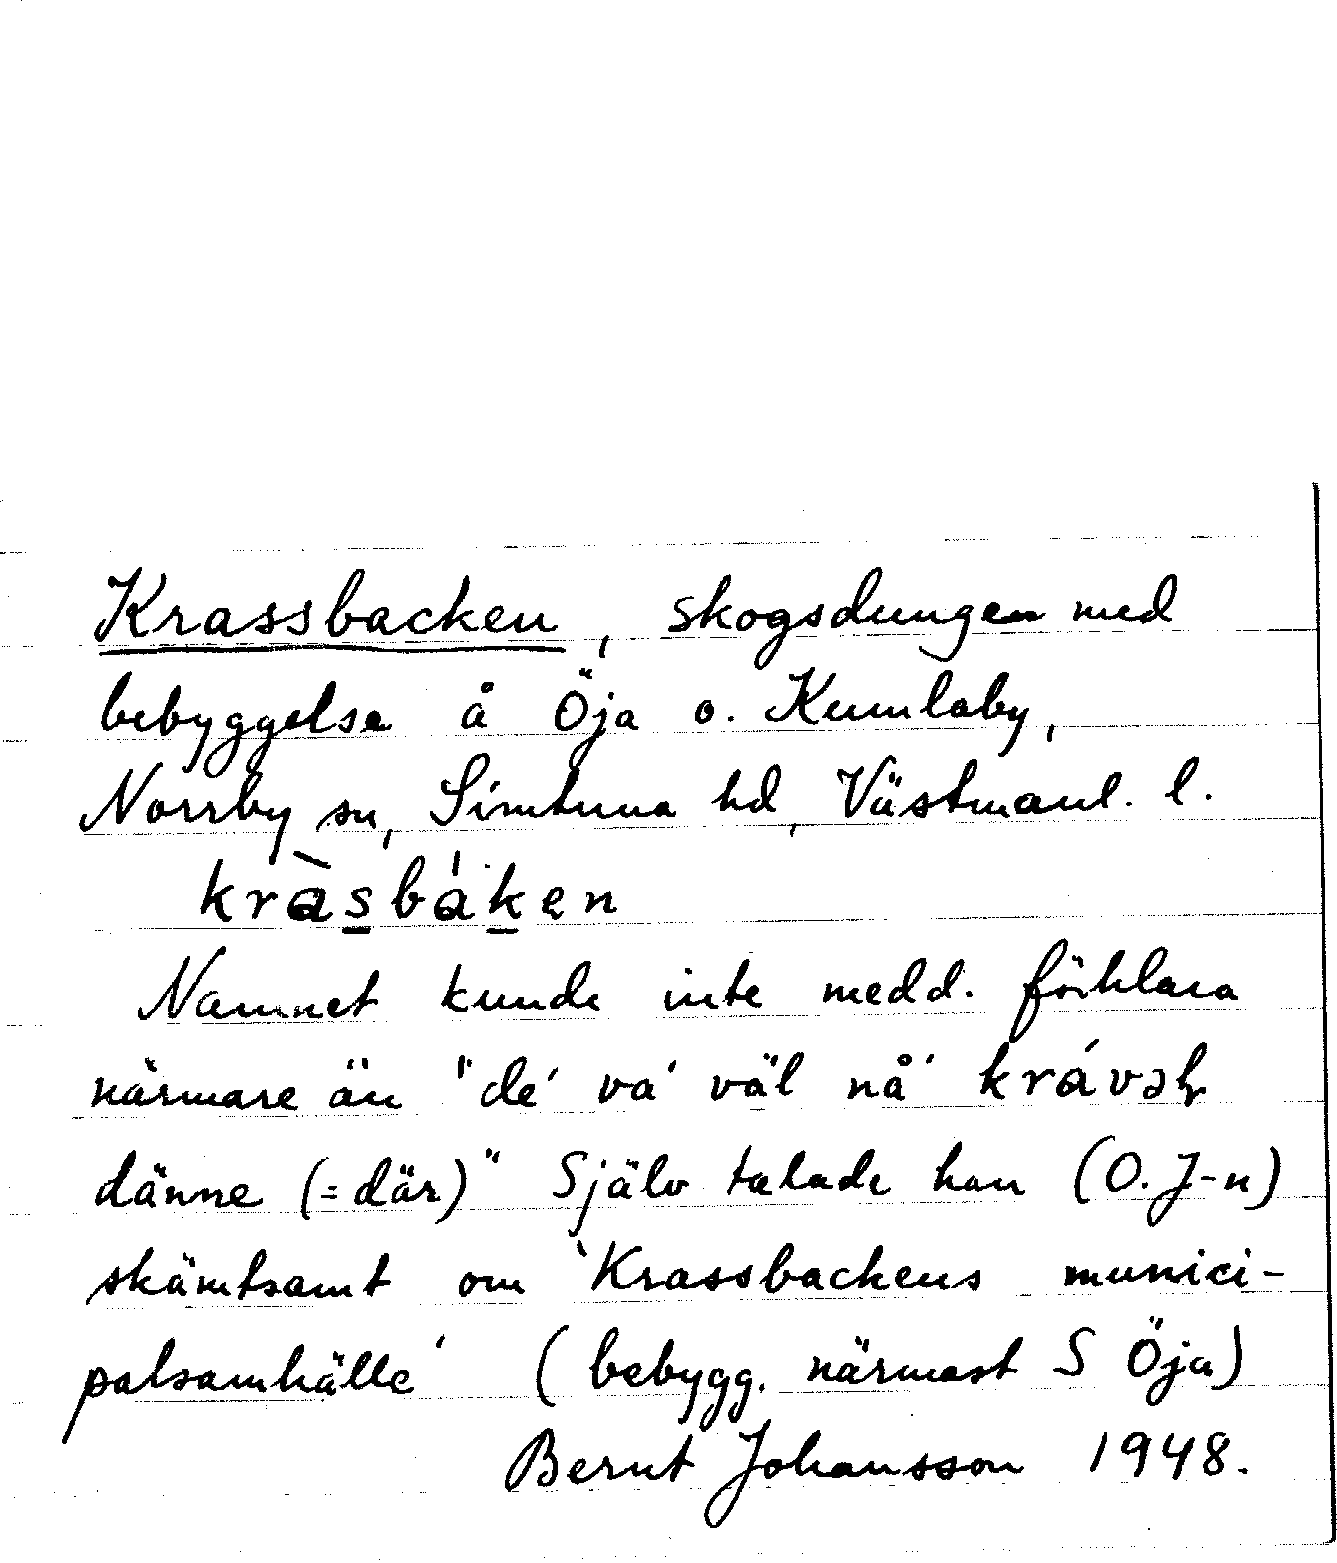 Krassbacken, skogsdungen med
bebyggelse å Öja o. Kumlaby,
Norrby sn, Simtuna hd, Västmanl. l.
kràsbáken
Namnet kunde inte medd. förklara
närmare än "de' va' väl nå'
dänne (=där)" Själv talade han (O. J-n)
skämtsamt om 'Krassbackens munici-
palsamhälle' (bebygg. närmast S Öja)
Bernt Johansson 1948.